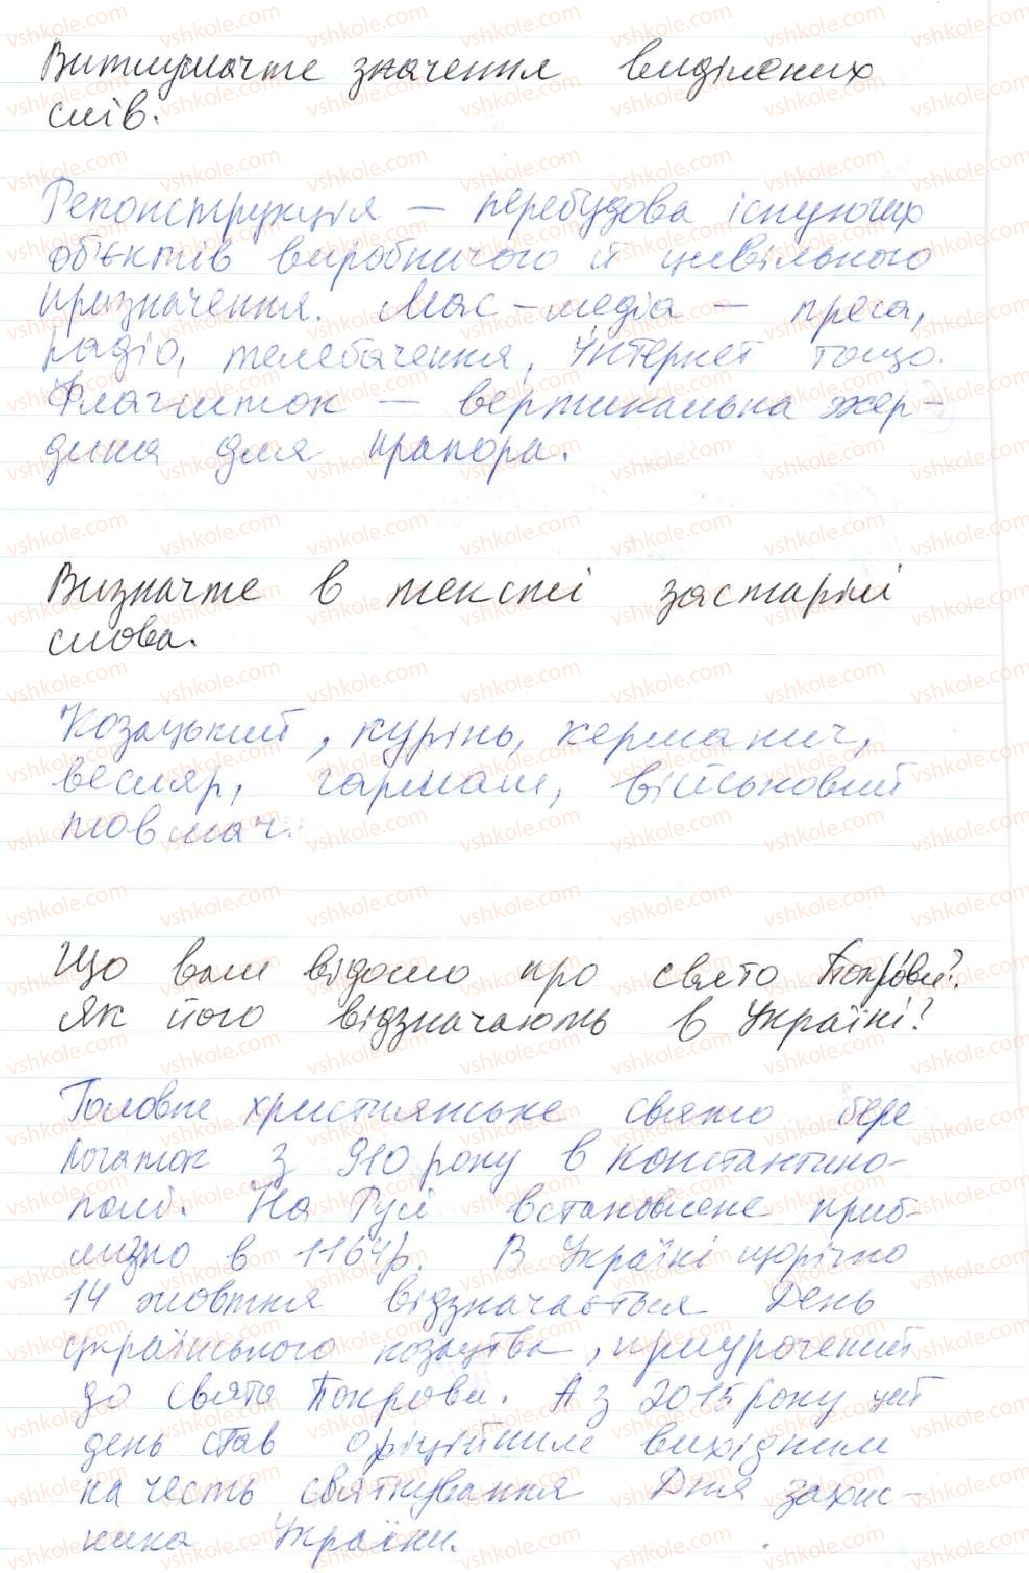 Витлумачте значення виділених
слів.
Реконструкція – перебудова існуючих
об'єктів виробничого й цивільного
призначення. Мас-медіа – преса,
радіо, телебачення, Інтернет тощо.
Флагшток – вертикальна жер-
дина для прапора.
Визначте в тексті застарілі
слова.
Козацький, курінь, керманич,
весляр, гармаш, військовий
товмач.
Що вам відомо про свято Покрови?
Як його відзначають в Україні?
Головне християнське свято бере
початок з 910 року в Константино-
полі. На Русі встановлене приб-
лизно в 1164р. В Україні щорічно
14 жовтня відзначається День
українського козацтва, приурочений
до свята Покрови. А з 2015 року цей
день став офіційним вихідним
на честь святкування Дня захис-
ника України.